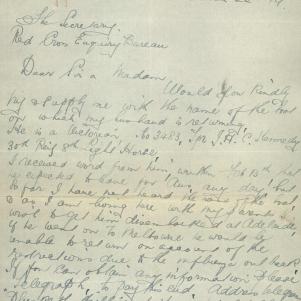 The Secretary
Red Cross Enquiry Bureau
Dear Sir or Madam
Would you kindly
try & supply me with the name of the boat
on which my husband is returning
He is a Victorian, No 3483, Tpr J. H. C. Kennedy
30th Reig 8th Light Horse,
I received word from him, written Feb 13th that
expected to leave for Aus. any day, but
so far I have not heard the name of the boat
& as I am living here with my parents
want to get him disembarked at Adelaide
if he went on to Melbourne he would be
unable to return on account of the
restrictions due to the influenza out break
If you can obtain any information Please
Telegraph, to pay this end. Address telegram